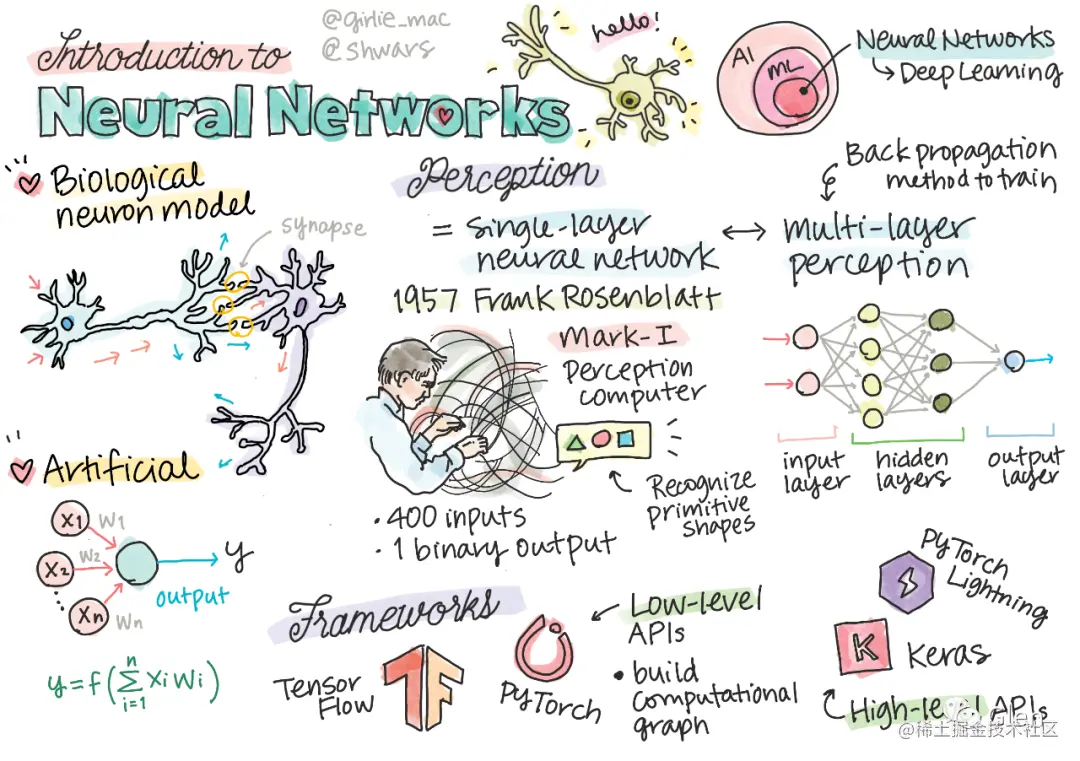 @girlie_mac
@shwars
Introduction to
Neural Networks
hello!
AI
ML
Neural Networks
Deep Learning
Biological
neuron model
synapse
Perception
= single-layer
neural network
1957 Frank Rosenblatt
Mark-I
perception
computer
Recognize
primitive
shapes
• 400 inputs
• 1 binary output
Back propagation
method to train
multi-layer
perception
input
layer
hidden
layers
output
layer
Artificial
X1
W1
X2
W2
Xn
Wn
y
output
y=f(∑XiWi)
n
i=1
Frameworks
Tensor
Flow
PyTorch
Low-level
APIs
• build
computational
graph
PyTorch
Lightning
K
Keras
High-level APIs
Glen
@稀土掘金技术社区